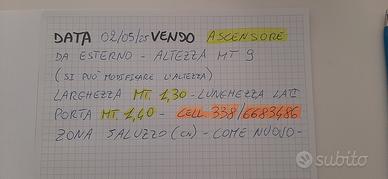 DATA 02/05/25 VENDO ASCENSORE
DA ESTERNO - ALTEZZA MT 9
(SI PUÒ MODIFICARE L'ALTEZZA)
LARGHEZZA MT. 1,30 - LUNGHEZZA LATI
PORTA MT 1,40 - CELL. 338/6683486
ZONA SALUZZO (CN) - COME NUOVO -
subito